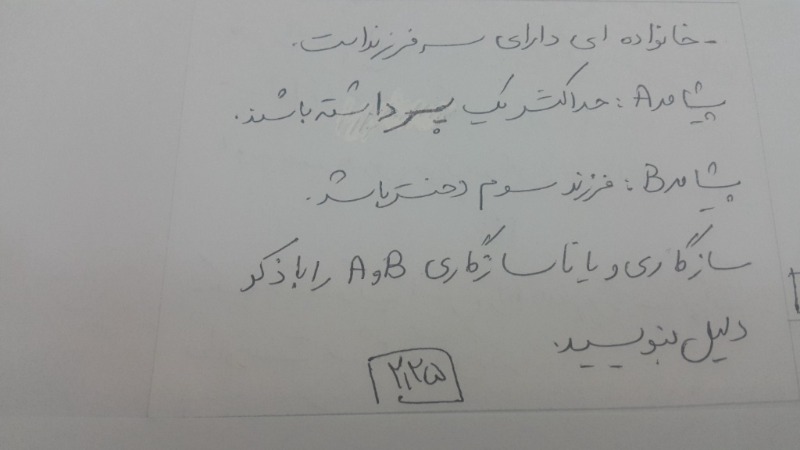 - خانواده ای دارای سه فرزند است.
پیشامد A : حداکثر یک پسر داشته باشند.
پیشامد B : فرزند سوم دختر باشد.
سازگاری و یا ناسازگاری A و B را با ذکر
دلیل بنویسید.
۲,۲۵